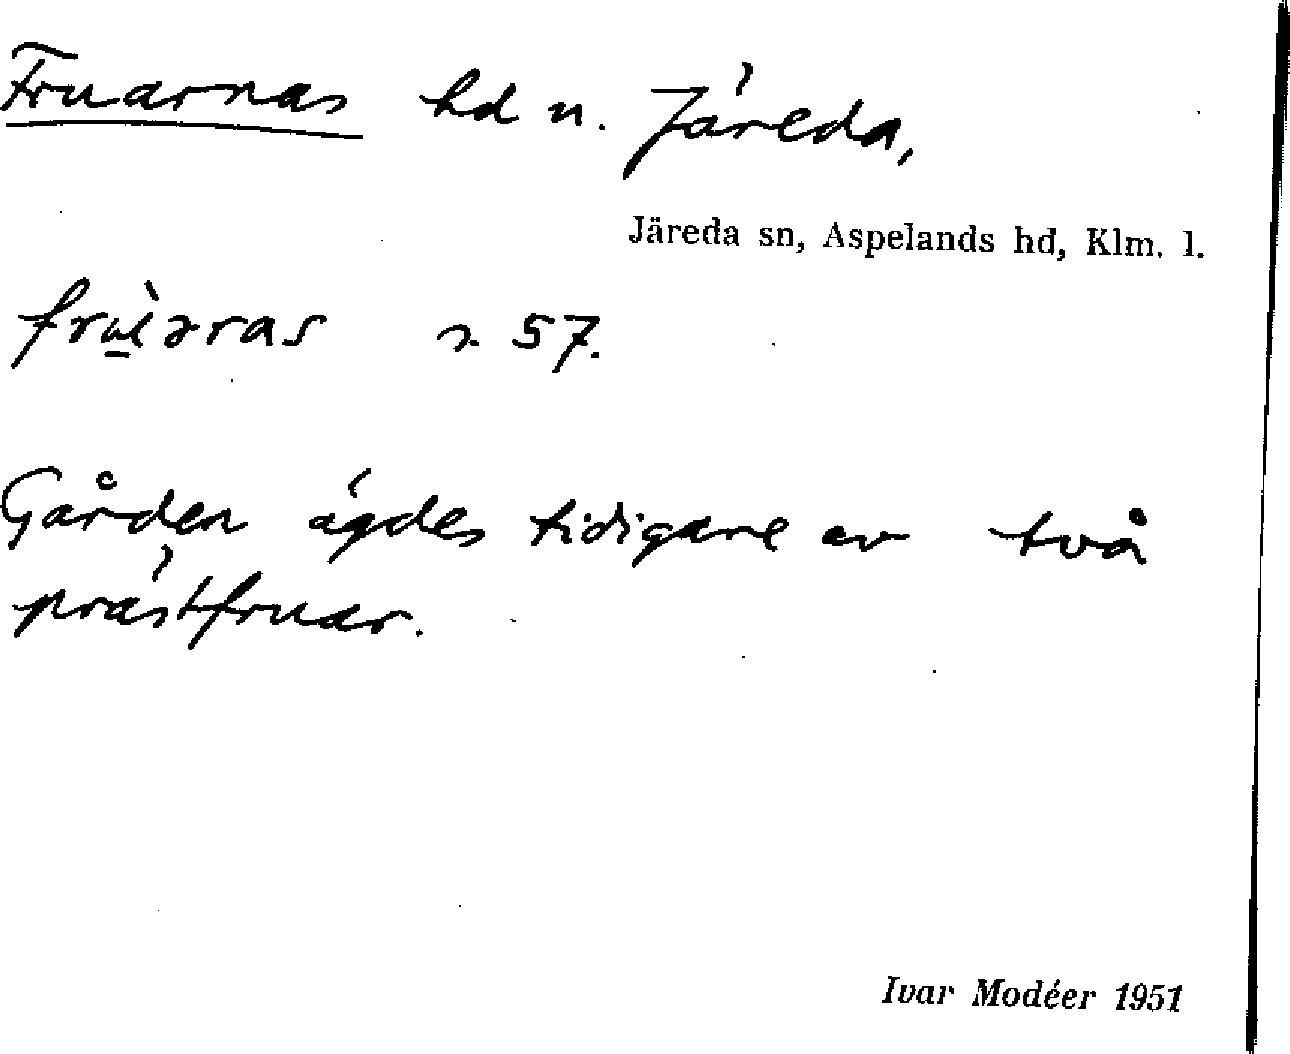 Fruarnas hd n. Järeda,
Järeda sn, Aspelands hd, Klm. l.
s. 57.
Gården ägdes tidigare av två
prästfruar.
Ivar Modéer 1951